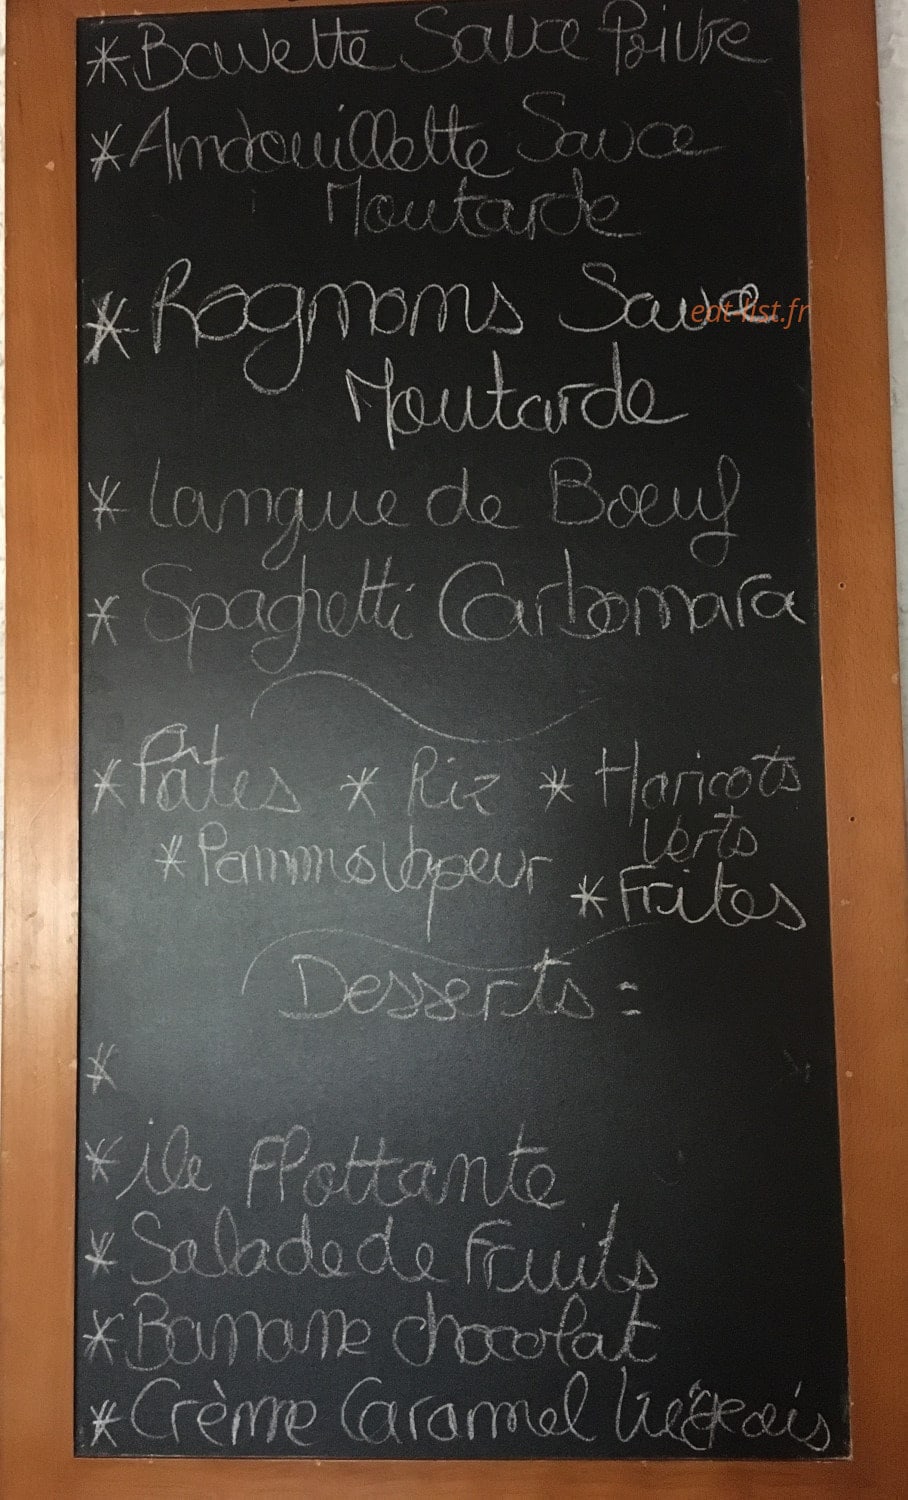 * Bavette Sauce Poivre
* Andouillette Sauce
Moutarde
* Rognons Sauce
eat-list.fr
Moutarde
* Langue de Boeuf
* Spaghetti Carbonara
* Pâtes * Riz * Haricots
Verts
* Pomme Vapeur
* Frites
Desserts :
*
* ile Flottante
* Salade de Fruits
* Banane chocolat
* Crème Caramel Liégeois